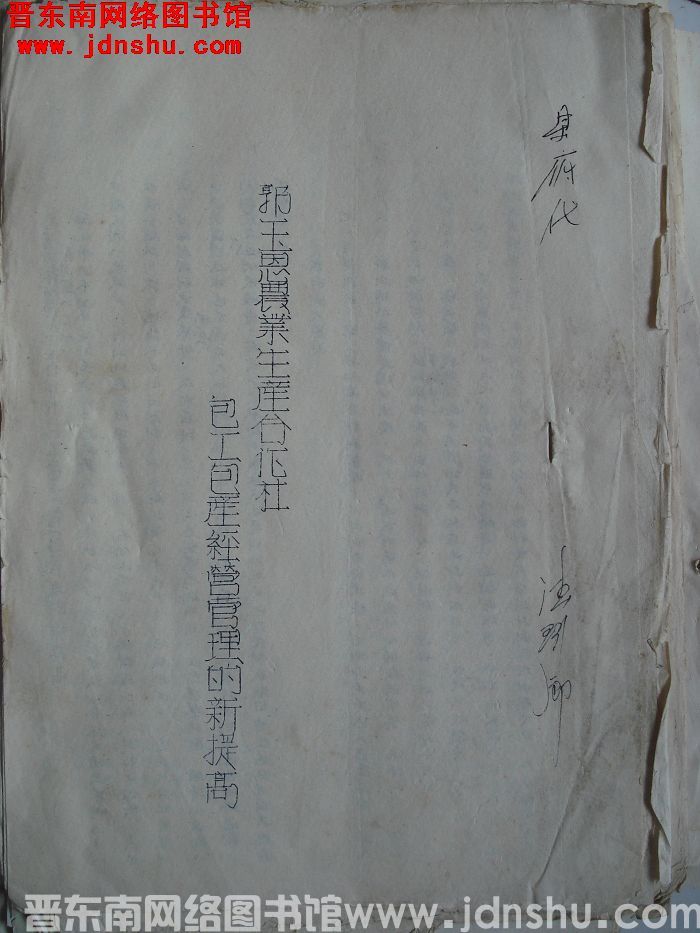 晋东南网络图书馆
www.jdnshu.com
县府代
郭玉恩農業生産合作社
包工包産經營管理的新提高
晋东南网络图书馆www.jdnshu.com